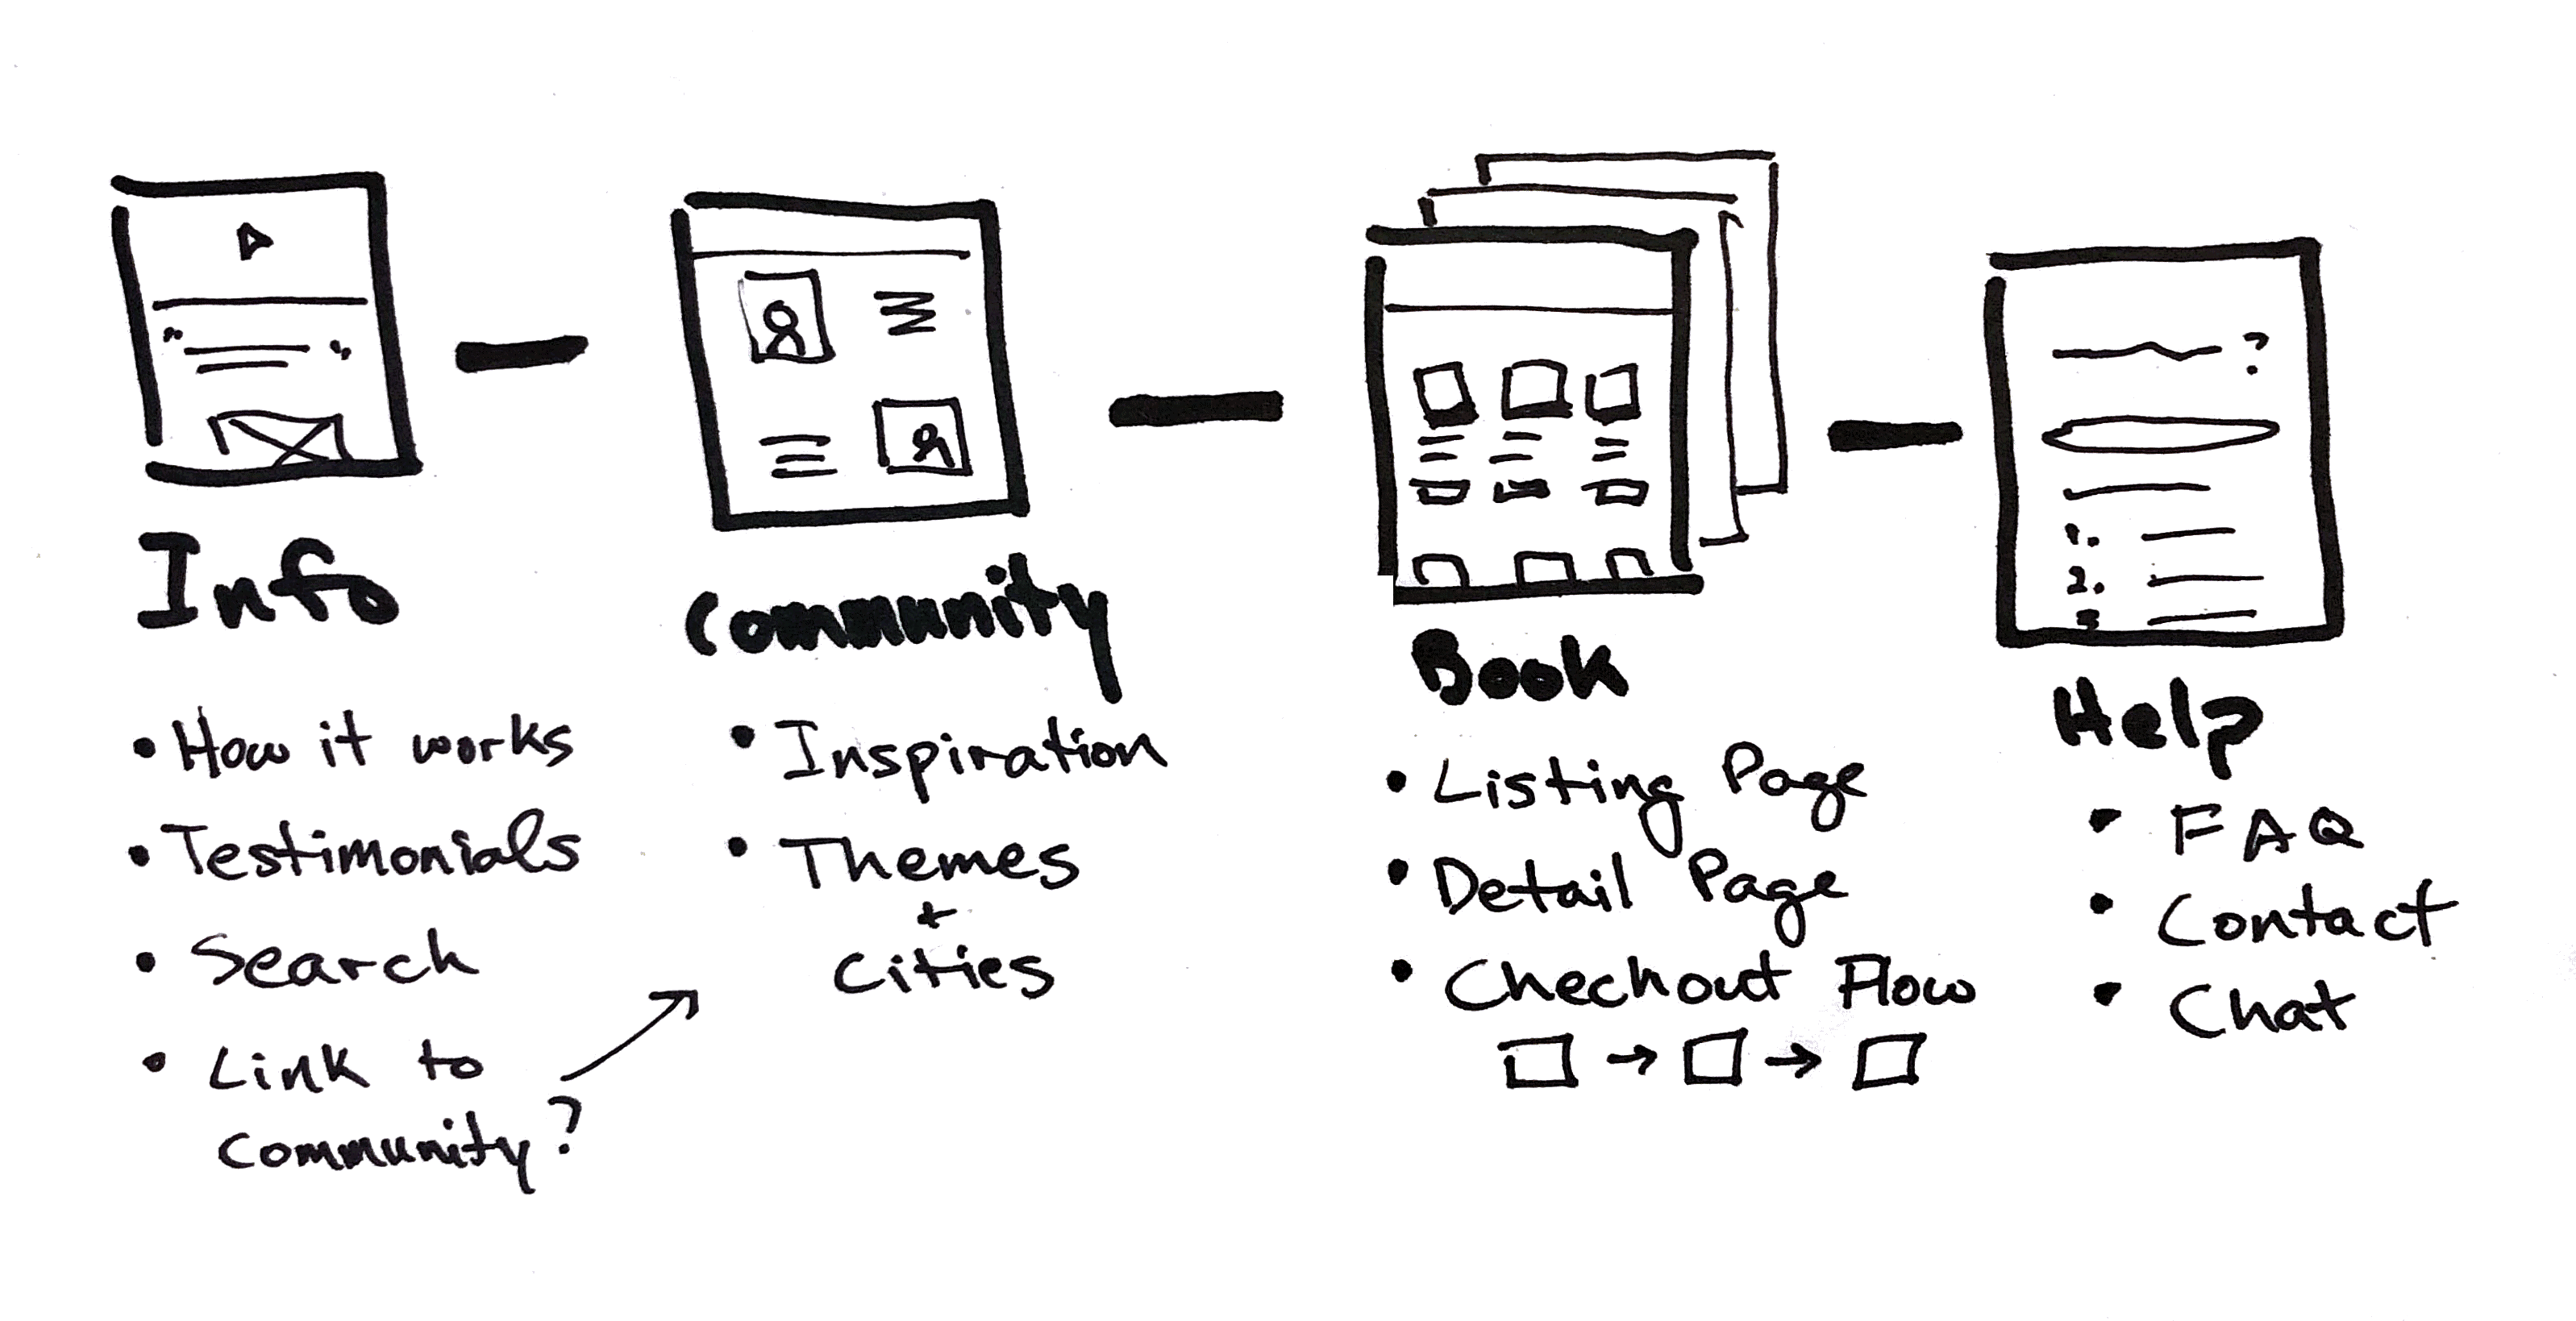 Info
• How it works
• Testimonials
• Search
• Link to
community?
Community
• Inspiration
• Themes
+
Cities
Book
• Listing Page
• Detail Page
• Checkout Flow
?
1.
2.
3
Help
• FAQ
• Contact
• Chat